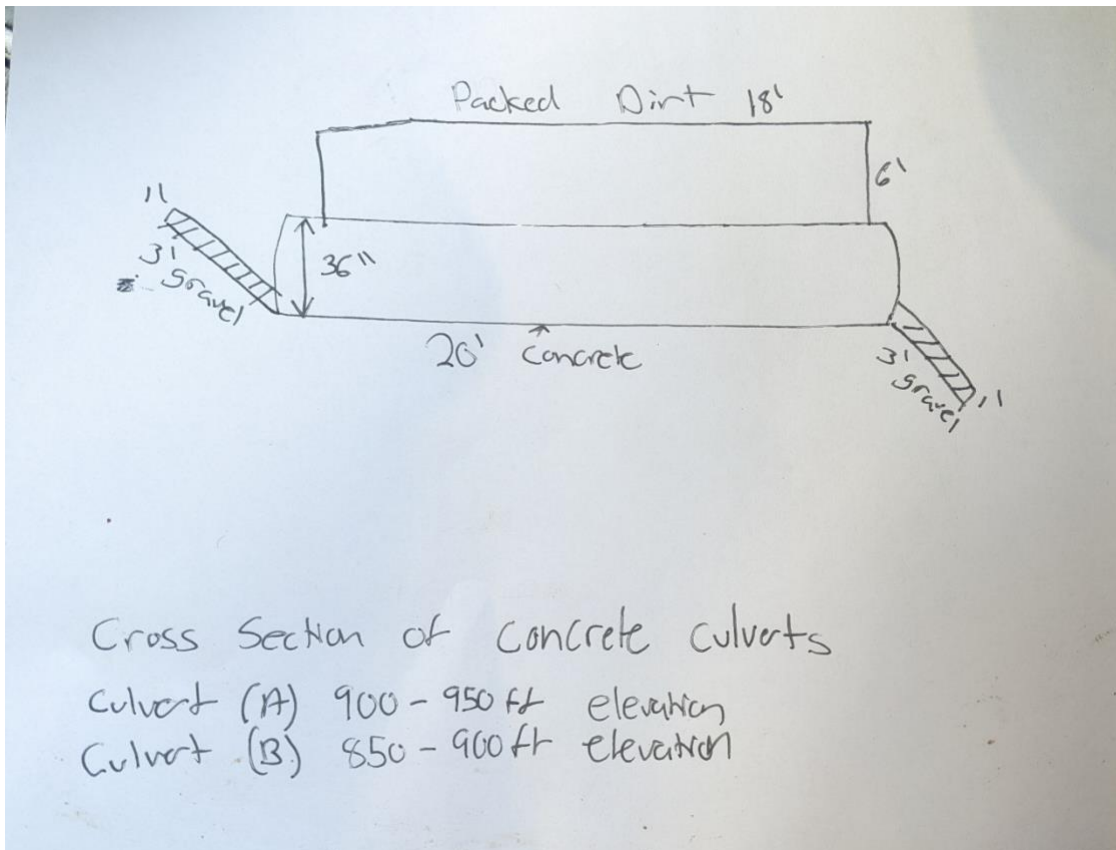 Packed Dirt 18'
6'
1'
36"
3'
gravel
20' Concrete
3'
gravel
1'
Cross Section of Concrete Culverts
Culvert (A) 900-950 ft elevation
Culvert (B) 850-900 ft elevation